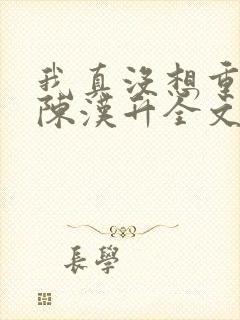 我真没想重
陳漢升全文
長學